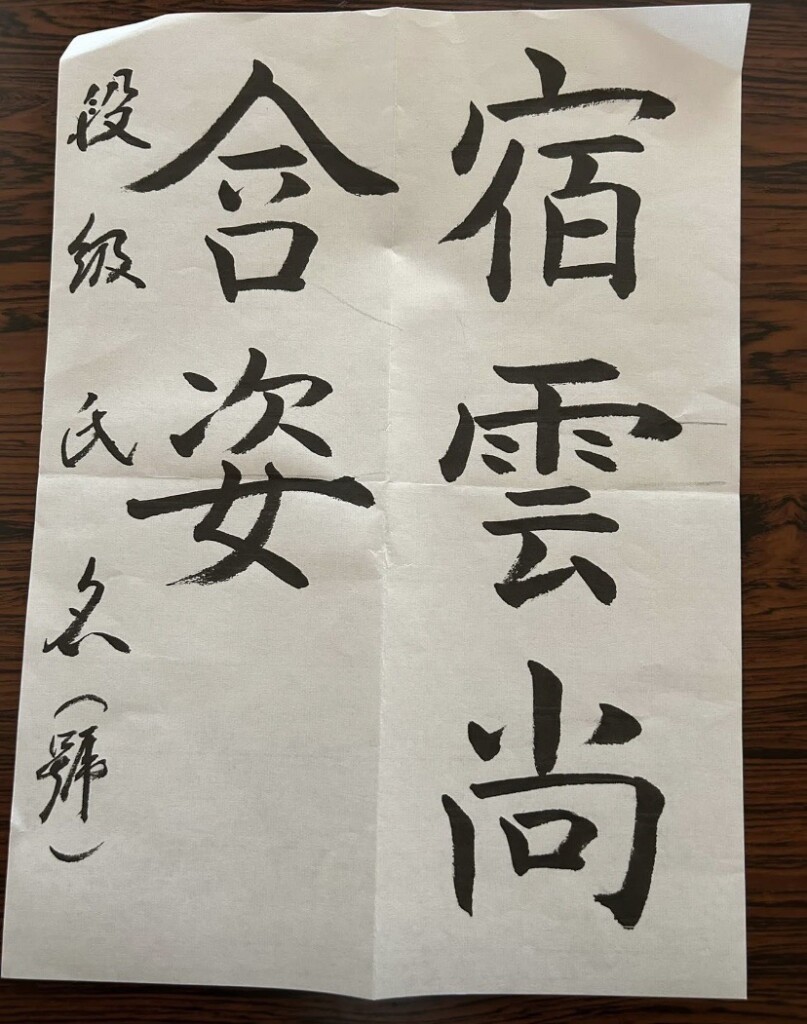 宿雲尚
含姿
段級氏名（號）